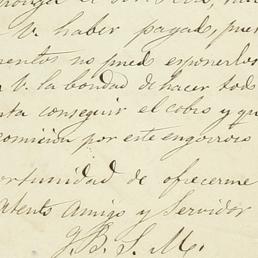 V. haber pagado, pues
mentos no pued esponerlos
a V. la bondad de hacer todo
ta conseguir el cobro y qu
comision por este engorroso
ortunidad de ofrecerme
atento Amigo y Servidor
J. B. S. M.